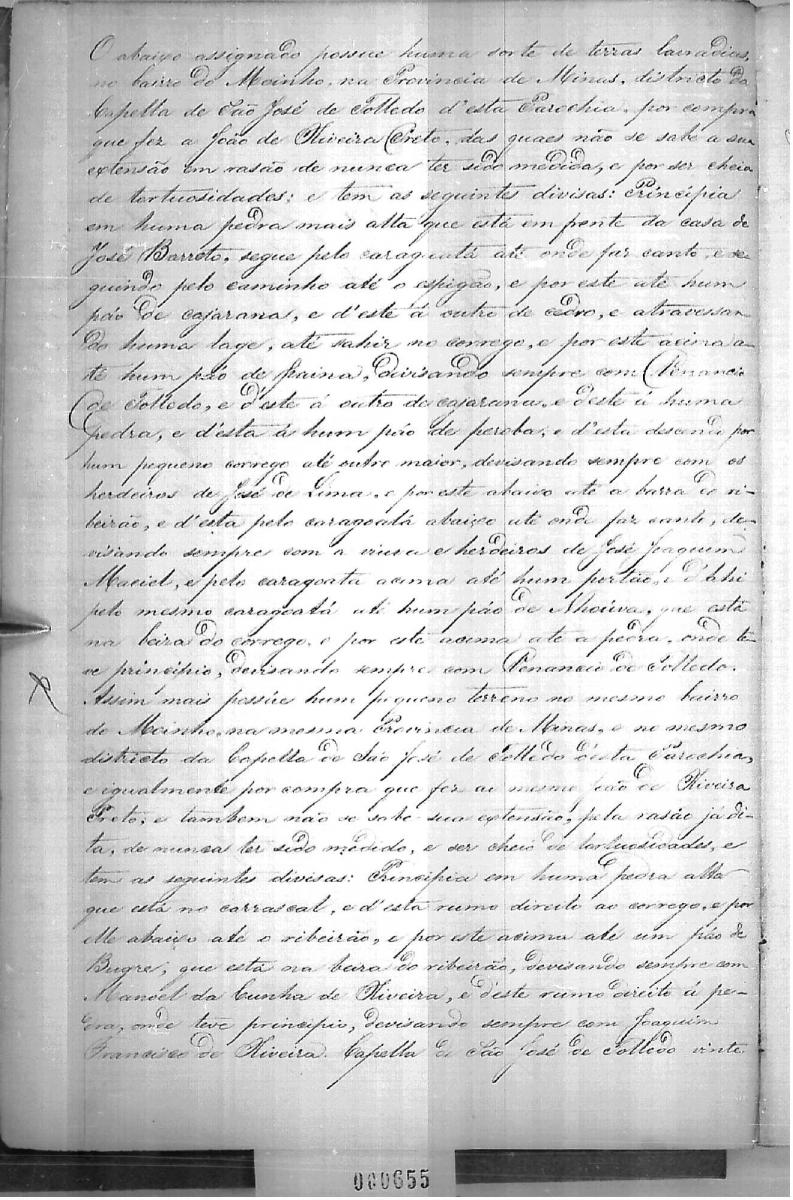 O abaixo assignado possue huma sorte de terras lavradias,
no bairro do Moinho, na Provincia de Minas, districto da
Capella de São José de Tolledo d'esta Parochia, por compra
que fez a João de Oliveira Preto, das quaes não se sabe a sua
extensão em rasão de nunca ter sido medida, e por ser cheia
de tortuosidades; e tem as seguintes divisas: Principia
em huma pedra mais alta que está em frente da casa de
José Barreto, segue pelo caragoatá até onde faz canto, e se-
guindo pelo caminho até o espigão, e por este até hum
páo de cajarana, e d'este á outro de cedro, e atravessan-
do huma lage, até sahir no corrego, e por este acima a-
té hum páo de faina, devisando sempre com Venancio
de Tolledo, e d'este á outro de cajarana, e d'este á huma
pedra, e d'esta á hum páo de peroba; e d'esta descendo por
hum pequeno corrego até outro maior, devisando sempre com os
herdeiros de José de Lima, e por este abaixo até a barra do ri-
beirão, e d'esta pelo caragoatá abaixo até onde faz canto, de-
visando sempre com a viuva e herdeiros de José Joaquim
Maciel, e pelo caragoata acima até hum portão, e d'ahi
pelo mesmo caragoatá até hum páo de, que está
na beira do corrego, e por este acima até a pedra, onde te-
ve principio, devisando sempre com Venancio de Tolledo.
Assim mais possúe hum pequeno terreno no mesmo bairro
do Moinho, na mesma Provincia de Minas, e no mesmo
districto da Capella de São José de Tolledo d'esta Parochia,
e igualmente por compra que fez ao mesmo João de Oliveira
Preto; e tambem não se sabe sua extensão, pela rasão já di-
ta, de nunca ter sido medido, e ser cheio de tortuosidades, e
tem as seguintes divisas: Principia em huma pedra alta
que está no carrascal, e d'esta rumo direito ao corrego, e por
elle abaixo até o ribeirão, e por este acima até um páo de
Bugre, que está na beira do ribeirão, devisando sempre com
Manoel da Cunha de Oliveira, e d'este rumo direito á pe-
dra, onde teve principio, devisando sempre com Joaquim
Francisco de Oliveira. Capella de São José de Tolledo vinte
000655